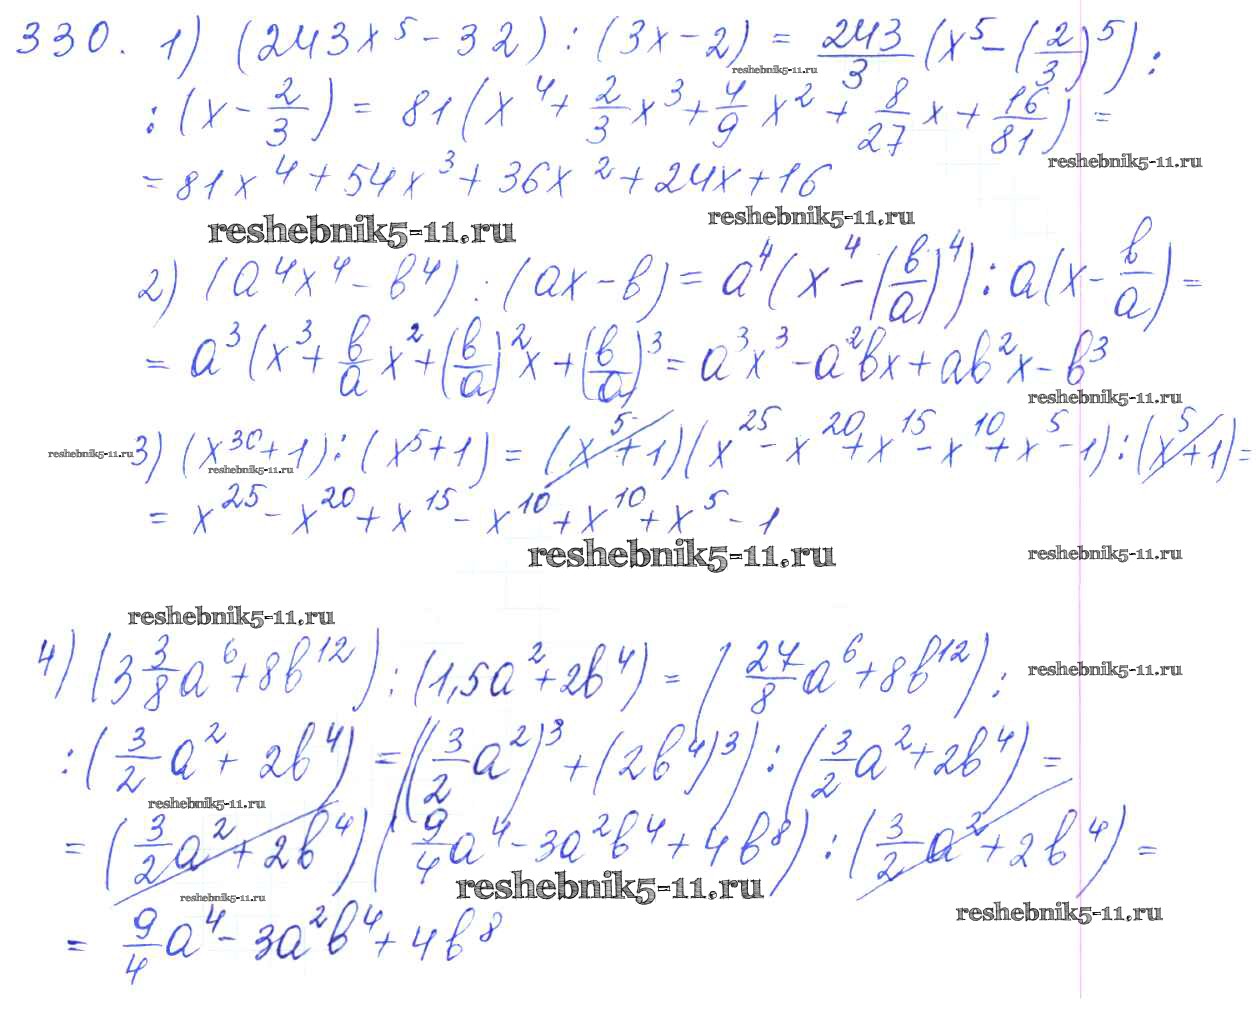 330. 1) (243x⁵ - 32) : (3x - 2) = 243/3 (x⁵ - (2/3)⁵) :
reshebnik5-11.ru
: (x - 2/3) = 81(x⁴ + 2/3 x³ + 4/9 x² + 8/27 x + 16/81) =
reshebnik5-11.ru
= 81x⁴ + 54x³ + 36x² + 24x + 16
reshebnik5-11.ru
reshebnik5-11.ru
2) (a⁴x⁴ - b⁴) : (ax - b) = a⁴(x⁴ - (b/a)⁴) : a(x - b/a) =
= a³(x³ + b/a x² + (b/a)² x + (b/a)³ = a³x³ - a²bx + ab²x - b³
reshebnik5-11.ru
reshebnik5-11.ru
3) (x³⁰ + 1) : (x⁵ + 1) = (x⁵ + 1)(x²⁵ - x²⁰ + x¹⁵ - x¹⁰ + x⁵ - 1) : (x⁵ + 1) =
reshebnik5-11.ru
= x²⁵ - x²⁰ + x¹⁵ - x¹⁰ + x¹⁰ + x⁵ - 1
reshebnik5-11.ru
reshebnik5-11.ru
reshebnik5-11.ru
4) (3 3/8 a⁶ + 8b¹²) : (1,5a² + 2b⁴) = (27/8 a⁶ + 8b¹²) :
reshebnik5-11.ru
: (3/2 a² + 2b⁴) = ((3/2 a²)³ + (2b⁴)³) : (3/2 a² + 2b⁴) =
reshebnik5-11.ru
= (3/2 a² + 2b⁴)(9/4 a⁴ - 3a²b⁴ + 4b⁸) : (3/2 a² + 2b⁴) =
reshebnik5-11.ru
reshebnik5-11.ru
reshebnik5-11.ru
= 9/4 a⁴ - 3a²b⁴ + 4b⁸